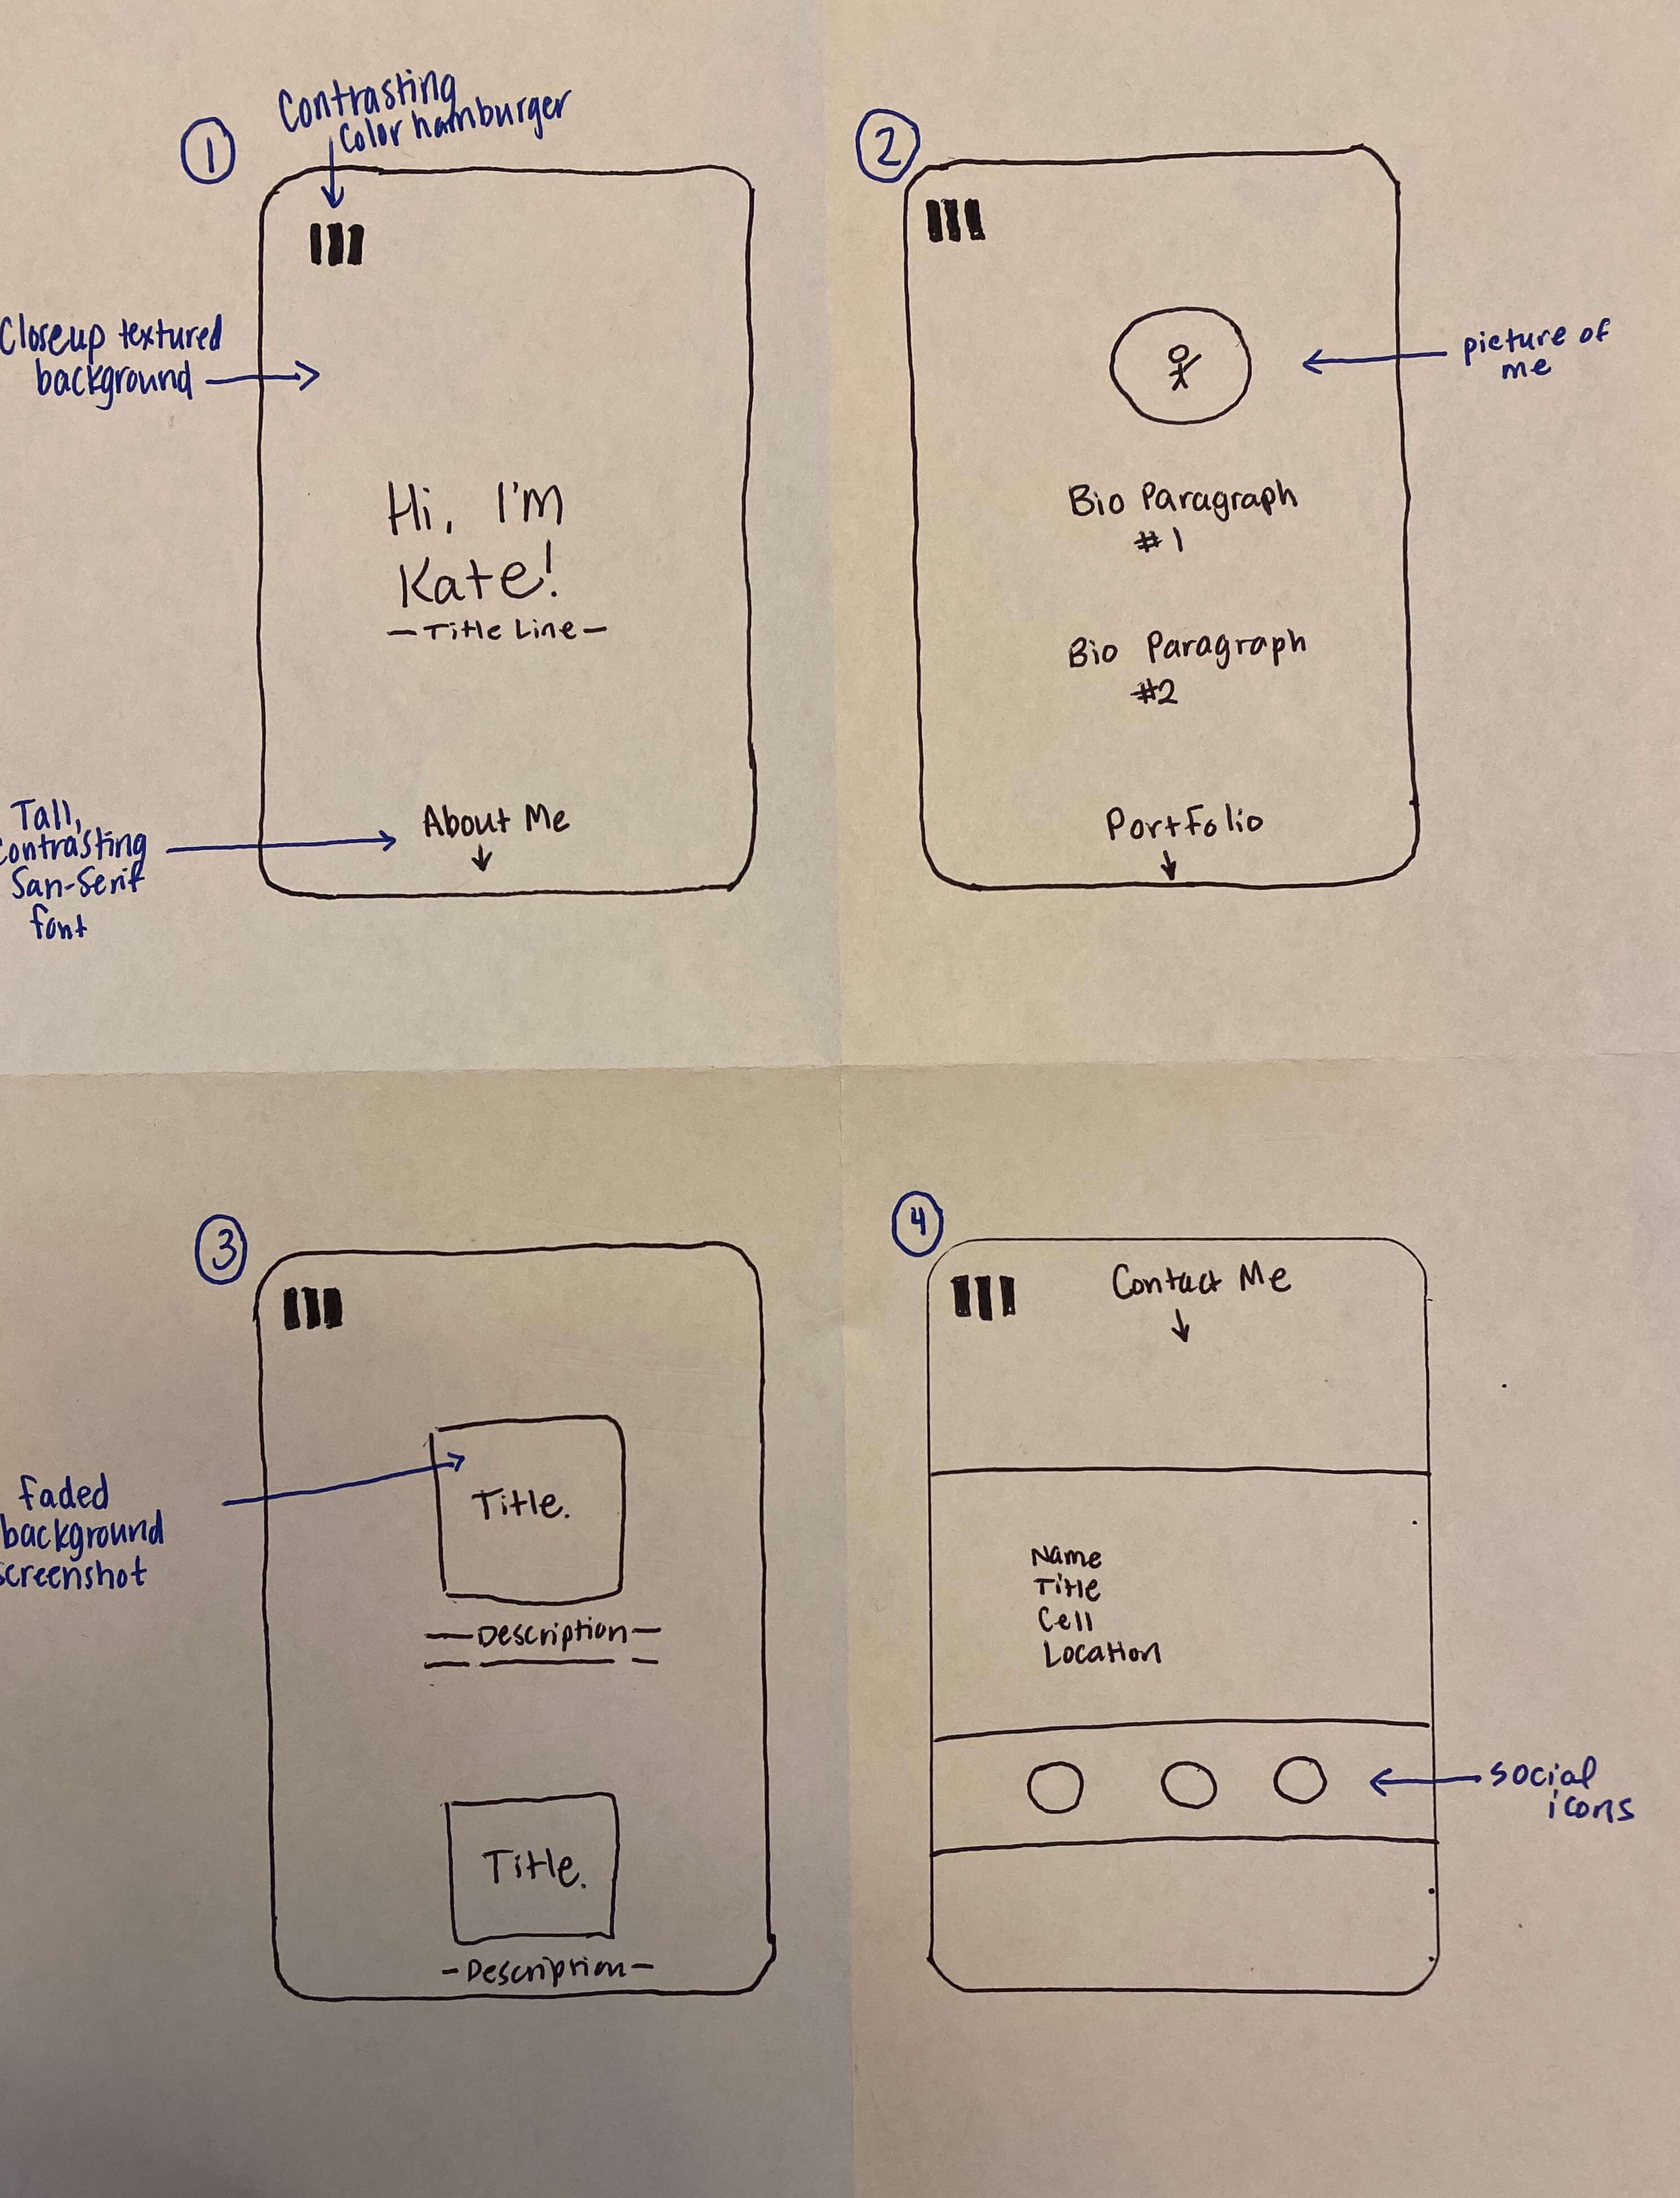 1
Contrasting
Color hamburger
Closeup textured
background
Hi, I'm
Kate!
Title Line
Tall,
Contrasting
San-Serif
font
About Me
2
picture of
me
Bio Paragraph
#1
Bio Paragraph
#2
Portfolio
3
faded
background
screenshot
Title.
Description
Title.
Description
4
Contact Me
Name
Title
Cell
Location
social
icons